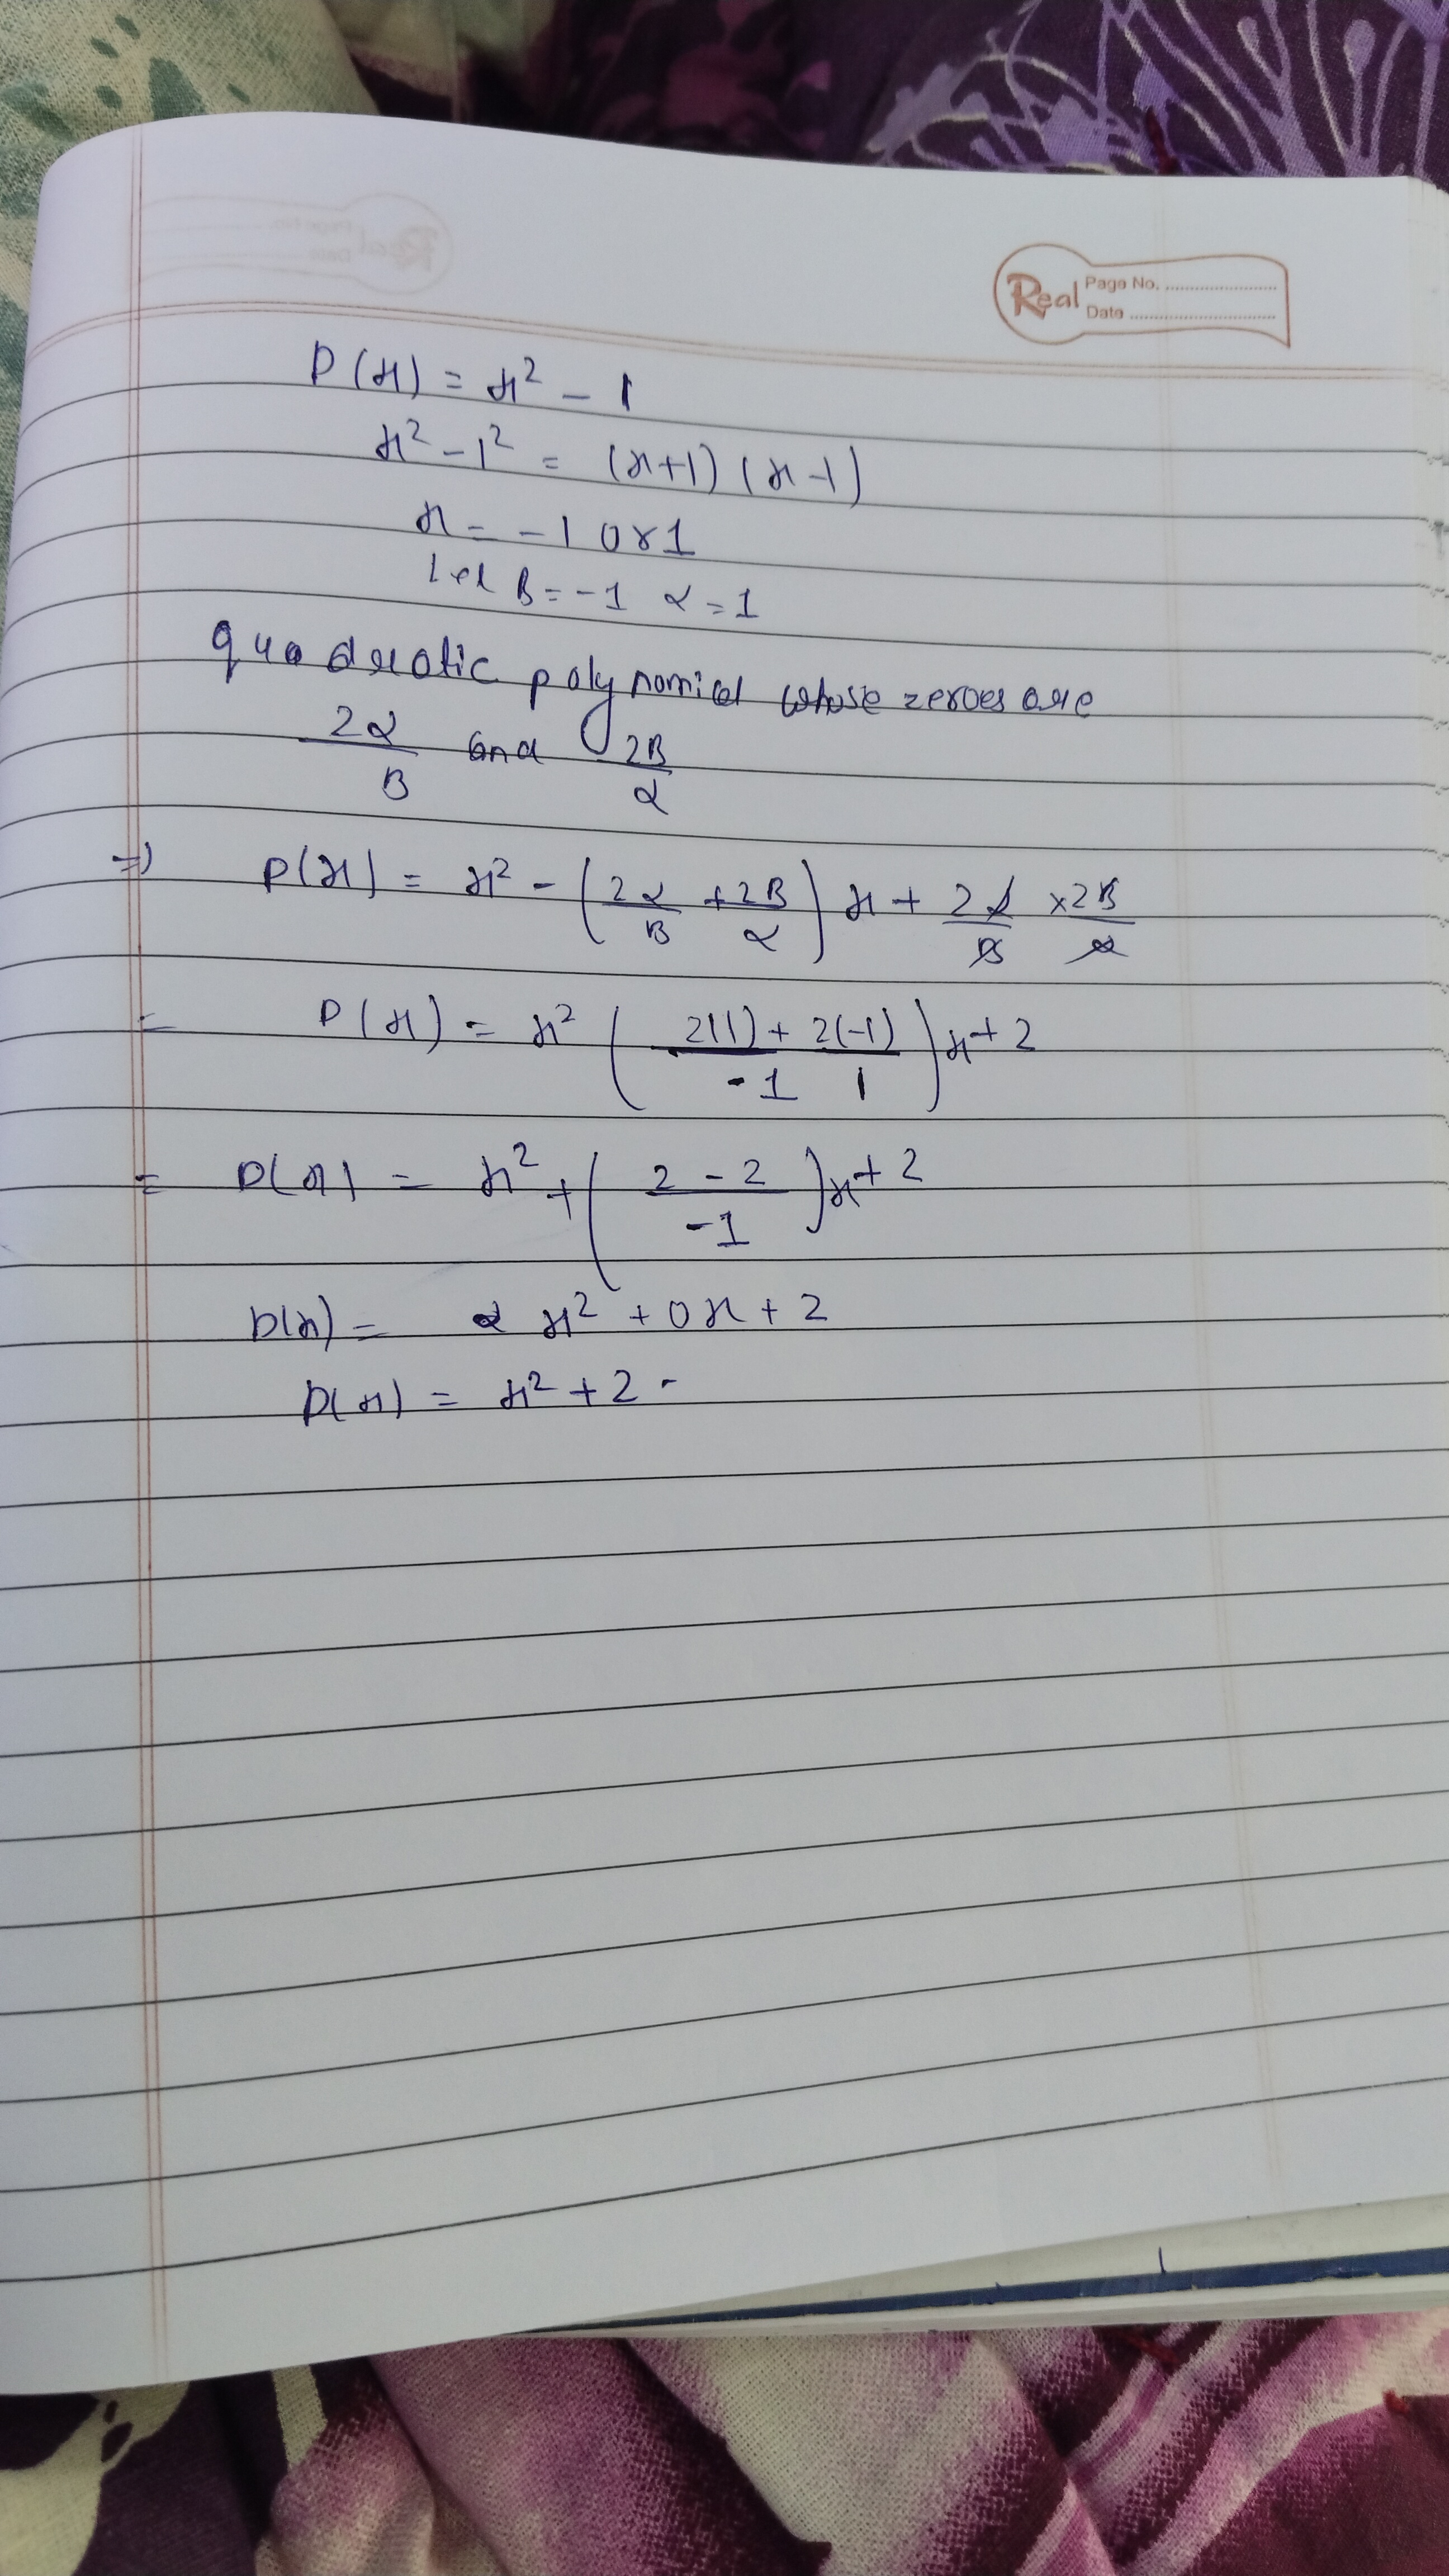 Real Page No. ........................
Date ........................
P(x) = x² - 1
x² - 1² = (x+1) (x-1)
x = -1 or 1
Let β = -1 α = 1
quadratic polynomial whose zeroes are
2α/β and 2β/α
⇒ P(x) = x² - (2α/β + 2β/α) x + 2α/β × 2β/α
= P(x) = x² (2(1)/-1 + 2(-1)/1) x + 2
= P(x) = x² + (2 - 2/-1) x + 2
P(x) = x² + 0x + 2
P(x) = x² + 2 -